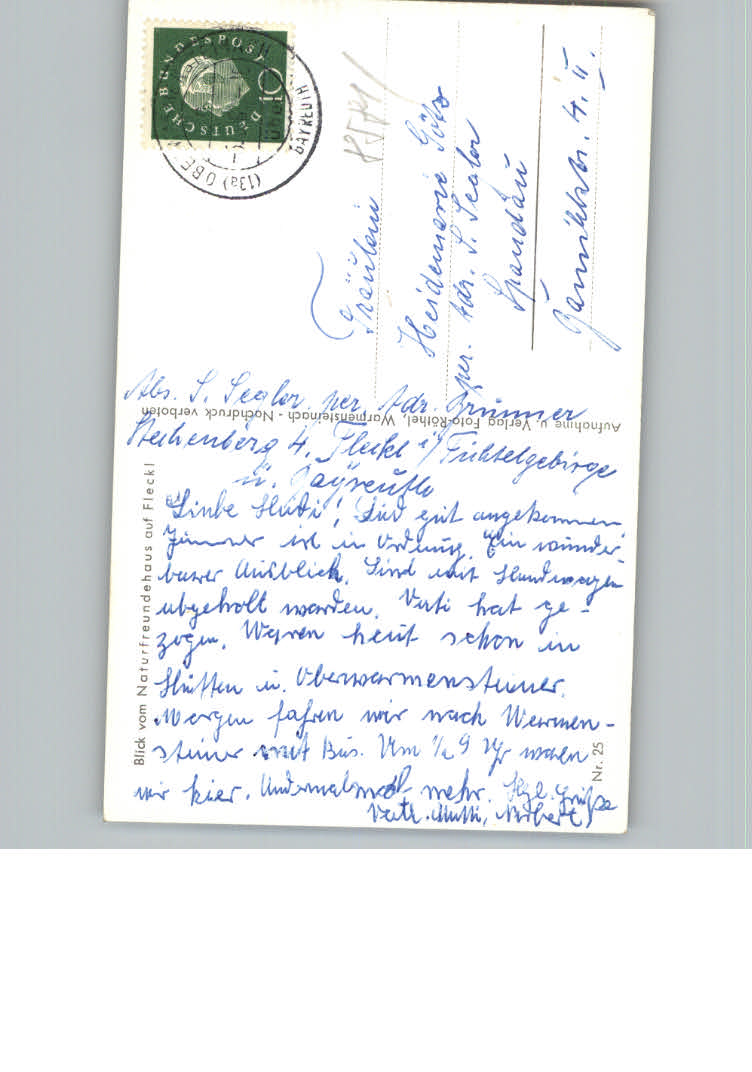 DEUTSCHE BUNDESPOST
10
(13a) OBE
BAYREUTH
8571
Fräulein
Heidemarie Götz
per. Adr. S. Seglor
Spandau
Jännickstr. 4. II.
Abs. S. Seglor. per. Adr. Brunner
4, Fleckl i/Fichtelgebirge
ü. Bayreuth
Aufnahme u. Verlag Foto-Röthel, Warmensteinach - Nachdruck verboten
Blick vom Naturfreundehaus auf Fleckl
Nr. 25
Liebe Hudi! Sind gut angekommen
Zimmer ist in Ordnung. Ein wunder-
barer Ausblick. Sind mit Handwagen
abgeholt worden. Vati hat ge-
zogen. Waren heut schon in
Hütten u. Oberwarmensteiner.
Morgen fahren wir nach Warmen-
steiner mit Bus. Um ½ 9 Uhr waren
wir hier. Andermal mehr. Hzl. Grüße
Vati. Mutti, Norbert